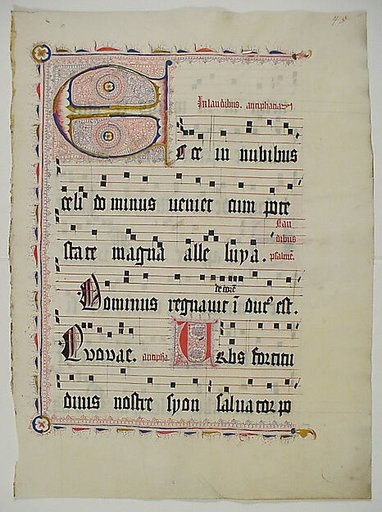 In laudibus. antiphana
Ecce in nubibus
celi dominus veniet cum pote
Lau
dibus
state magna alle luya. psalmꝰ.
Dominus regnavit
est.
Evovae. antipha. Urbs fortitu
dinis nostre syon salvator po